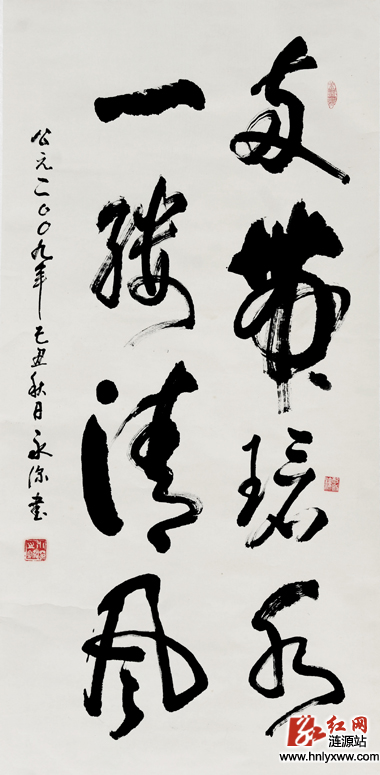 两带碧水
一缕清风
公元二〇〇九年己丑秋日永深书
红网
涟源站
www.hnlyxww.com